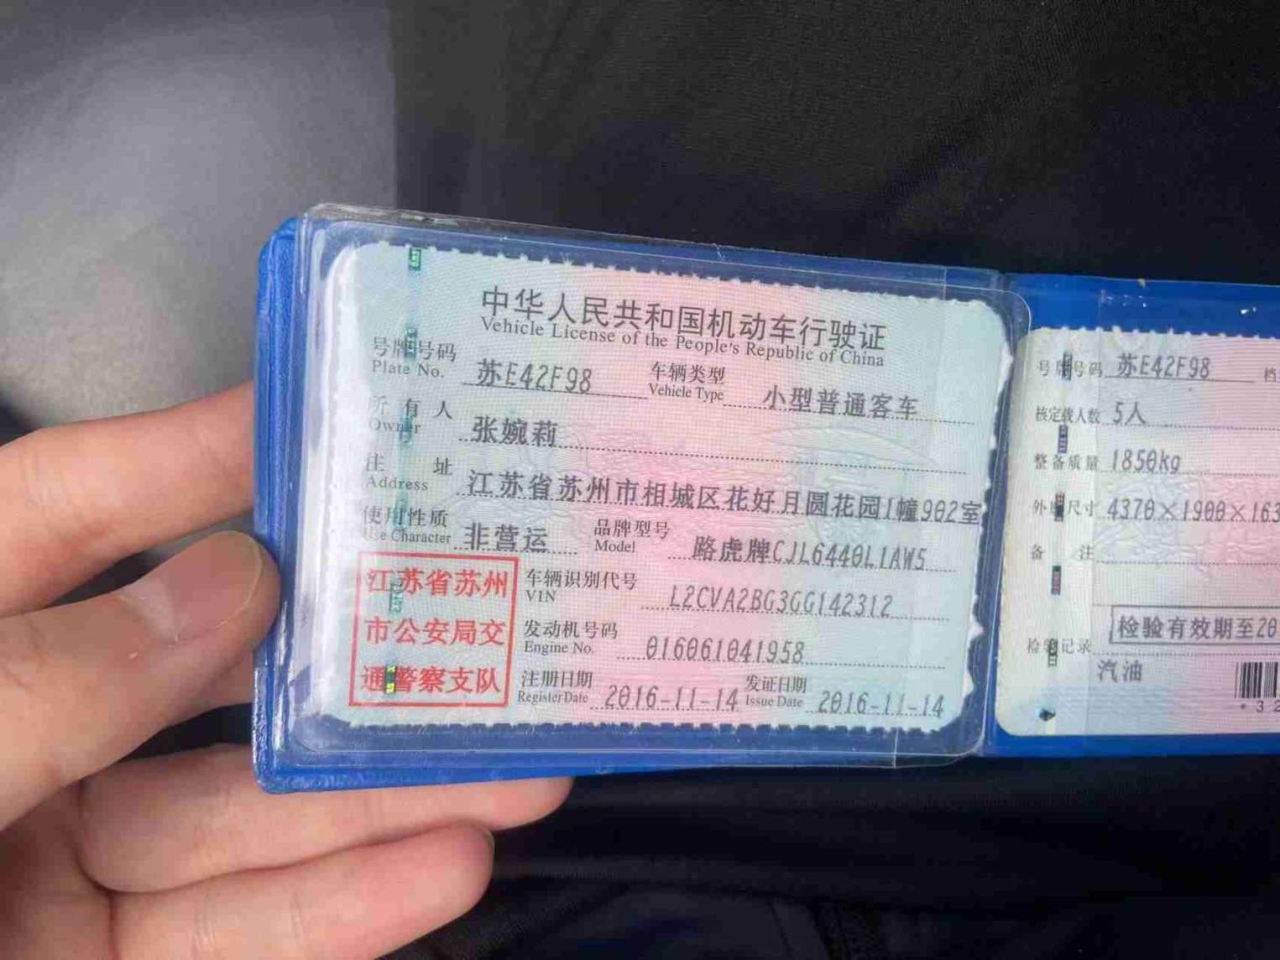 中华人民共和国机动车行驶证
Vehicle License of the People's Republic of China
号牌号码 苏E42F98 车辆类型 小型普通客车
Plate No. Vehicle Type
所有人 张婉莉
Owner
注址 江苏省苏州市相城区花好月圆花园1幢902室
Address
使用性质 非营运 品牌型号 路虎牌CJL6440L1AW5
Use Character Model
江苏省苏州
市公安局交
通警察支队
车辆识别代号 L2CVA2BG3GG142312
VIN
发动机号码 016061041958
Engine No.
注册日期 2016-11-14 发证日期 2016-11-14
Register Date Issue Date
号牌号码 苏E42F98 档
核定载人数 5人
整备质量 1850kg
外廓尺寸 4370×1900×163
备注
检验有效期至20
检验记录
汽油
*32